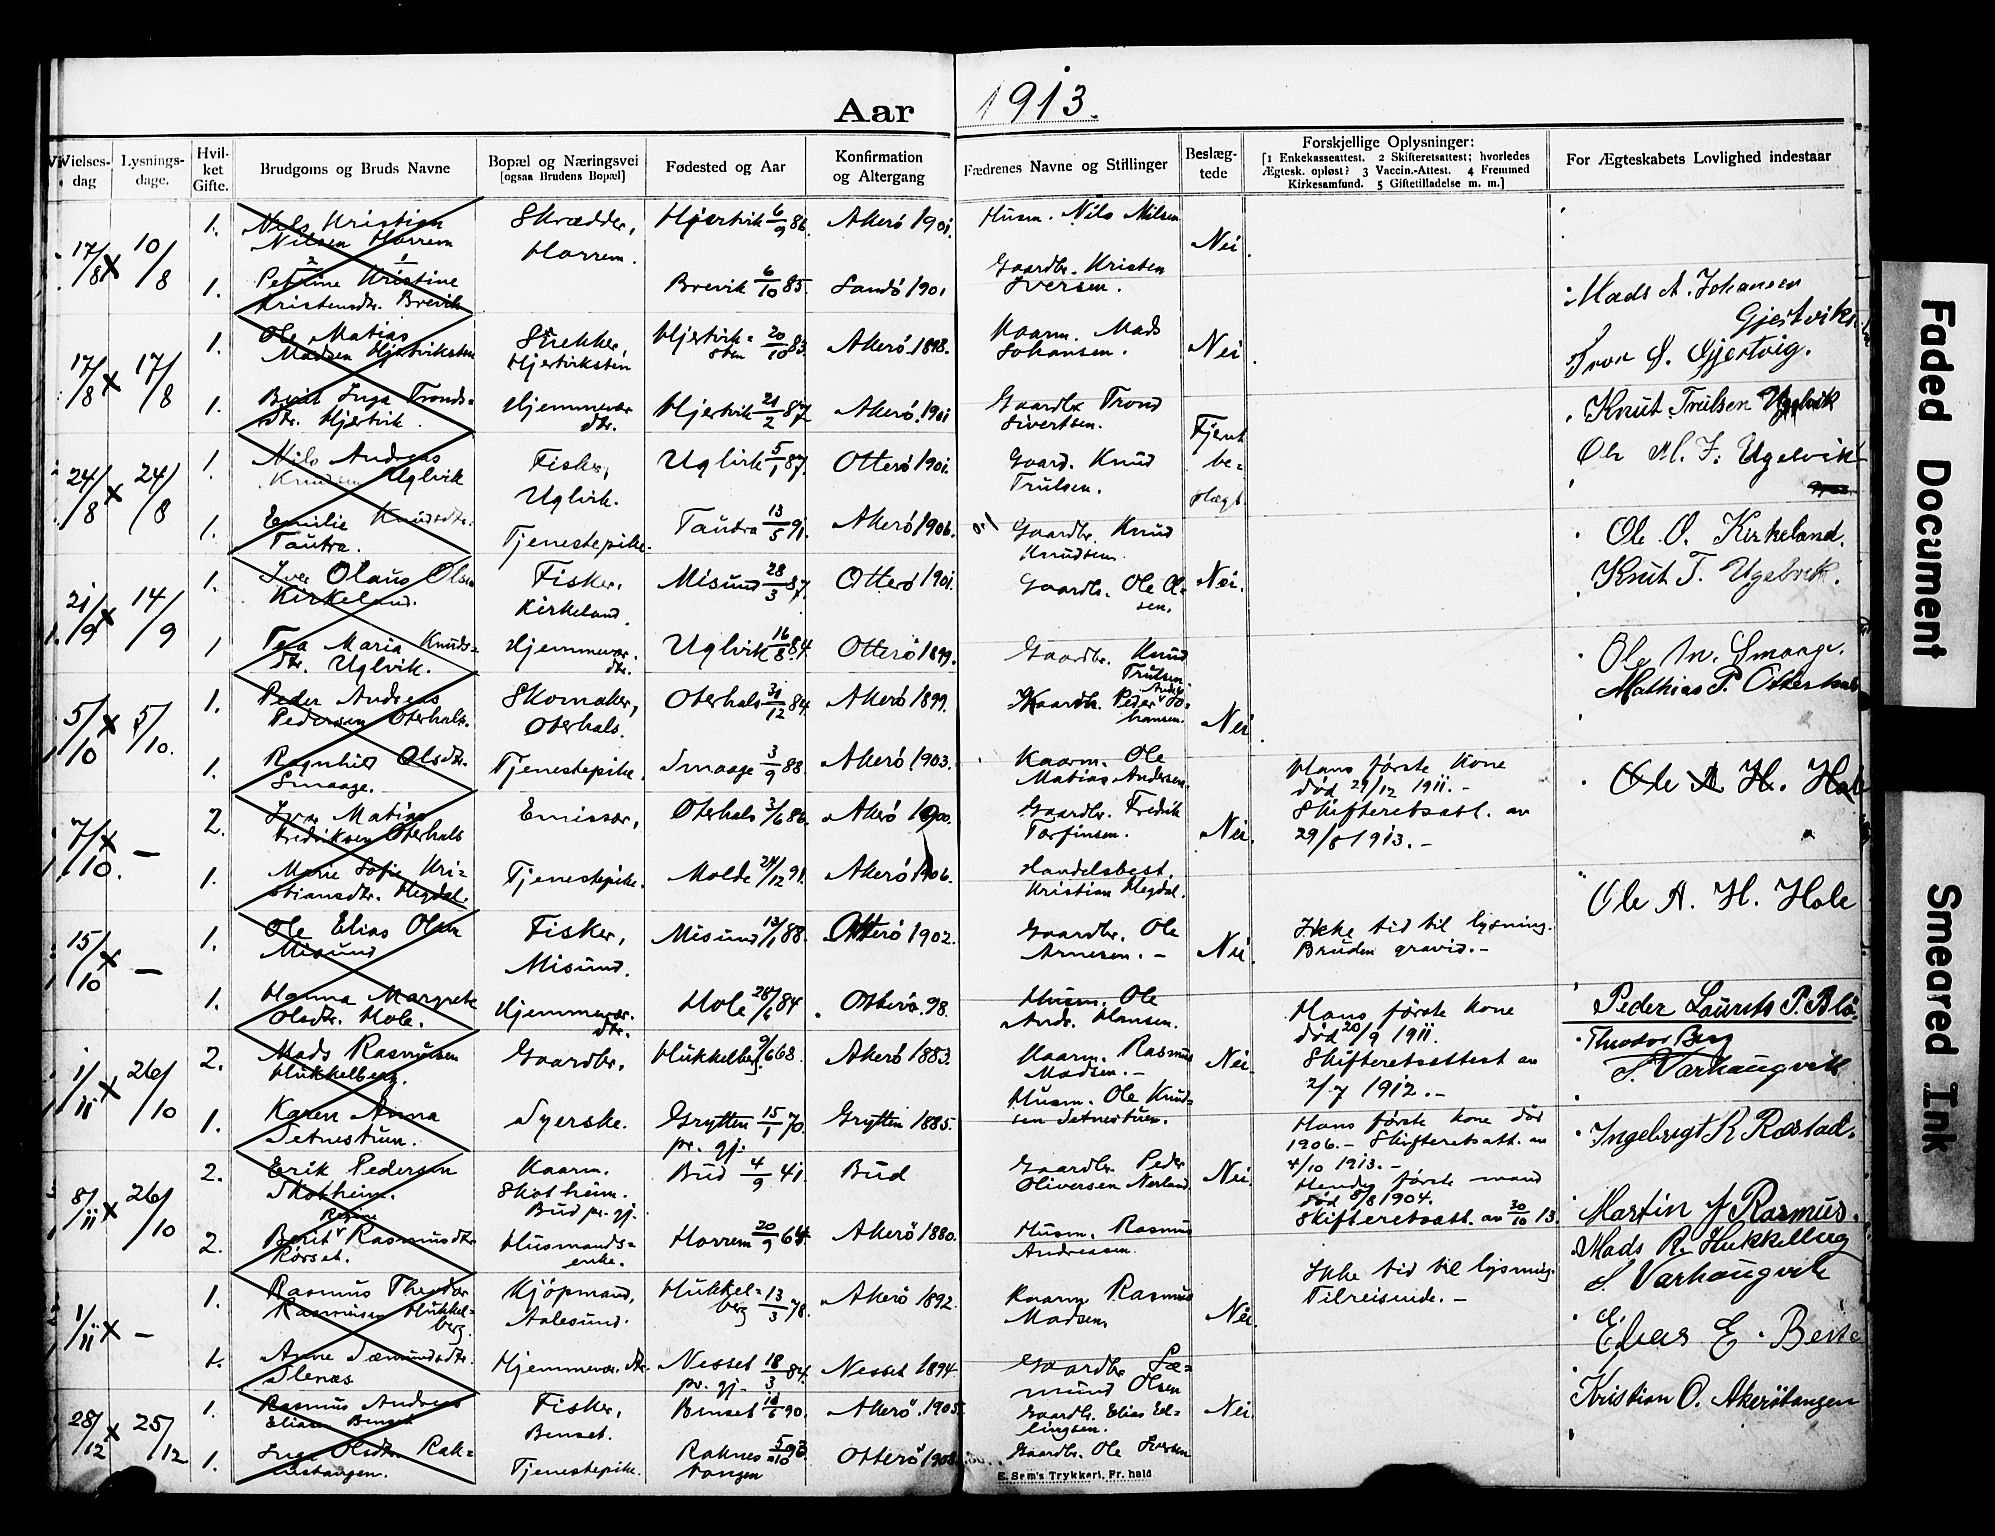 Aar 1913.
Vielses-dag
Lysnings-dage.
Hvil-ket Gifte.
Brudgoms og Bruds Navne
Bopæl og Næringsvei
[ogsaa Brudens Bopæl]
Fødested og Aar
Konfirmation og Altergang
Fædrenes Navne og Stillinger
Beslæg-tede
Forskjellige Oplysninger:
[1 Enkekasseattest. 2 Skifteretsattest; hvorledes Ægtesk. opløst? 3 Vaccin.-Attest. 4 Fremmed Kirkesamfund. 5 Giftetilladelse m. m.]
For Ægteskabets Lovlighed indestaar
17/8 x 10/8 1. Nils Kristian Nilsen Horrem Skrædder, Horrem. Hjertvik 6/9 86. Akerø 1901. Husm. Nils Nilsen Nei.
1. Petrine Kristine Kristensdtr. Brevik Brevik 6/10 85. Sandø 1901 Gaardbr. Kristen Iversen.
Mads A. Johansen Gjertviks
17/8 x 17/8 1. Ole Matias Madsen Hjertviksten Strekker, Hjertvikstén Hjertvik-sten 20/10 83. Akerø 1898. Kaarm. Mads Johansen. Nei
Tron S. Gjertvig.
1. Berit Inga Tronds-dtr. Hjertvik. Hjemmevær. dtr. Hjertvik 21/2 87 Akerø 1901 Gaardbr Trond Sivertsen.
Knut Trulsen Ugelvik
24/8 x 24/8 1. Nils Andreas Knudsen Uglvik Fisker, Uglvik. Uglvik 5/1 87. Otterø 1901. Gaard. Knud Trulsen. Fjernt be-slegt
1. Emilie Knudsdtr. Tautra. Tjenestepike. Tautra 13/5 91. Akerø 1906. Gaardbr. Knud Knudsen.
Ole O. Kirkeland.
21/9 x 14/9 1. Iver Olaus Olsen Kirkeland. Fisker, Kirkeland. Misund 28/3 87. Otterø 1901. Gaardbr. Ole Ol-sen. Nei.
Knut T. Ugelvik.
1 Tea Maria Knuds-dtr. Uglvik. Hjemmevær. dtr. Uglvik 16/8 84. Otterø 1899. Gaardbr. Knud Trulsen.
Ole M. Smaage.
Mathias P. Otterhals
5/10 x 5/10. 1. Peder Andreas Pedersen Oterhals. Skomaker, Oterhals. Oterhals 31/12 84. Akerø 1899. Kaardbr. Peder Andr. Jo-hansen. Nei
1. Ragnhild Olsdtr. Smaage. Tjenestepike. Smaage 3/9 88. Akerø 1903. Kaarm. Ole Matias Andersen.
7/10 x — 2. Iver Matias Fredriksen Oterhals Emissær, Oterhals 3/6 86. Akerø 1900. Gaardbr. Fredrik Torfinsen. Nei. Hans første kone død 29/12 1911.- Skifteretsatt. av 29/8 1913.-
Ole A H. Hole
1. Marie Sofie Kri-stiansdtr. Hegdal. Tjenestepike. Molde 24/12 91. Akerø 1906. Handelsbest. Kristian Hegdal.
15/10 x — 1. Ole Elias Olsen Misund Fisker, Misund. Misund 13/1 88. Otterø 1902. Gaardbr. Ole Arnesen.- Nei. Ikke tid til lysning. Bruden gravid.-
Ole A. H. Hole
1. Hanna Margrete Olsdtr. Hole. Hjemmevær. dtr. Hole 28/6 84 Otterø 98. Husm. Ole Andr. Hansen.
Peder Laurits P. Blø.
1/11 x 26/10 2. Mads Rasmusen Hukkelberg. Gaardbr. Hukkelberg. 9/6 68. Akerø 1883. Kaarm. Rasmus Madsen.- Nei. Hans første kone død 20/9 1911. Skifteretsattest av 2/7 1912.-
Theodor Berg
S. Varhaugvik
1. Karen Anna Setnestuen. Syerske. Grytten pr. gj. 15/1 70. Grytten 1885. Husm. Ole Knud-sen Setnestuen.
8/11 x 26/10 2. Erik Pedersen Skotheim. Kaarm. Skotheim. Bud pr. gj. Bud 4/9 41 Bud Gaardbr. Peder Oliversen Nerland Nei. Hans første kone død 1906.- Skifteretsatt. av 4/10 1913.-
Hendes første mand død 5/8 1904. Skifteretsatt. av 30/10 13.
Ingebrigt R Røstad.
2. Berit Regine Rasmusdtr Rørset. Husmands-enke. Horrem 20/9 64. Akerø 1880. Husm. Rasmus Andreasen.
Martin A Rasmus.
1/11 x — 1. Rasmus Theodor Rasmusen Hukkel-berg. Kjøpmand, Aalesund. Hukkel-berg 13/3 78. Akerø 1892. Kaarm Rasmus Madsen Nei. Ikke tid til lysning. Tilreisende.-
Mads R. Hukkelberg
S. Varhaugvik
1. Anne Sæmundsdtr. Slenæs Hjemmevær. dtr. Nesset pr. gj. 18/3 84. Nesset 1894. Gaardbr Sæ-mund Olsen
28/12 x 25/12 1. Rasmus Andreas Eliasen Benset Fisker, Benset. Benset 16/6 90. Akerø 1905. Gaardb. Elias El-lingsen. Nei.
Elias E. Bense
1. Inga Olsdtr. Rak-nestangen. Tjenestepike. Raknes-tangen 5/10 93 Otterø 1908. Gaardbr. Ole Iversen
Kristian O. Akerøtangen
E. Sem's Trykkeri, Fr. hald
Faded Document
Smeared Ink